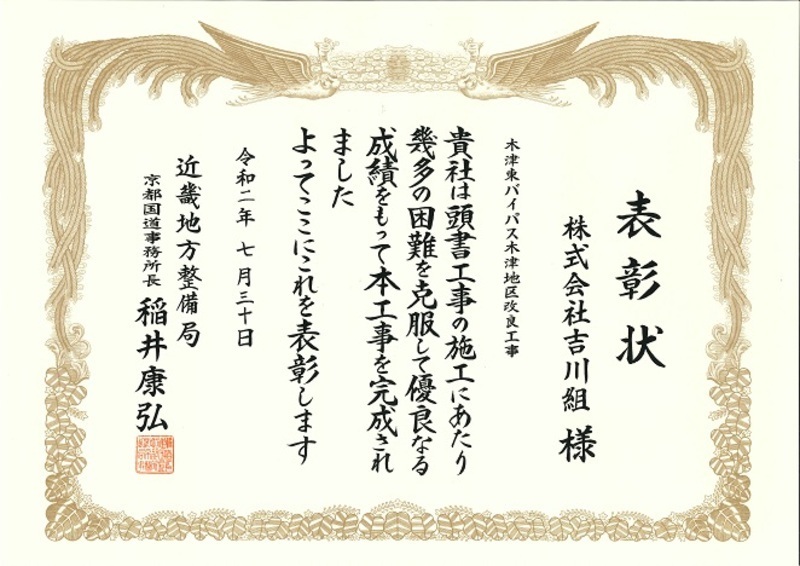 表彰状
株式会社吉川組 様
木津東バイパス木津地区改良工事
貴社は頭書工事の施工にあたり
幾多の困難を克服して優良なる
成績をもって本工事を完成され
ました
よってここにこれを表彰します
令和二年 七月三十日
近畿地方整備局
京都国道事務所長 稲井康弘